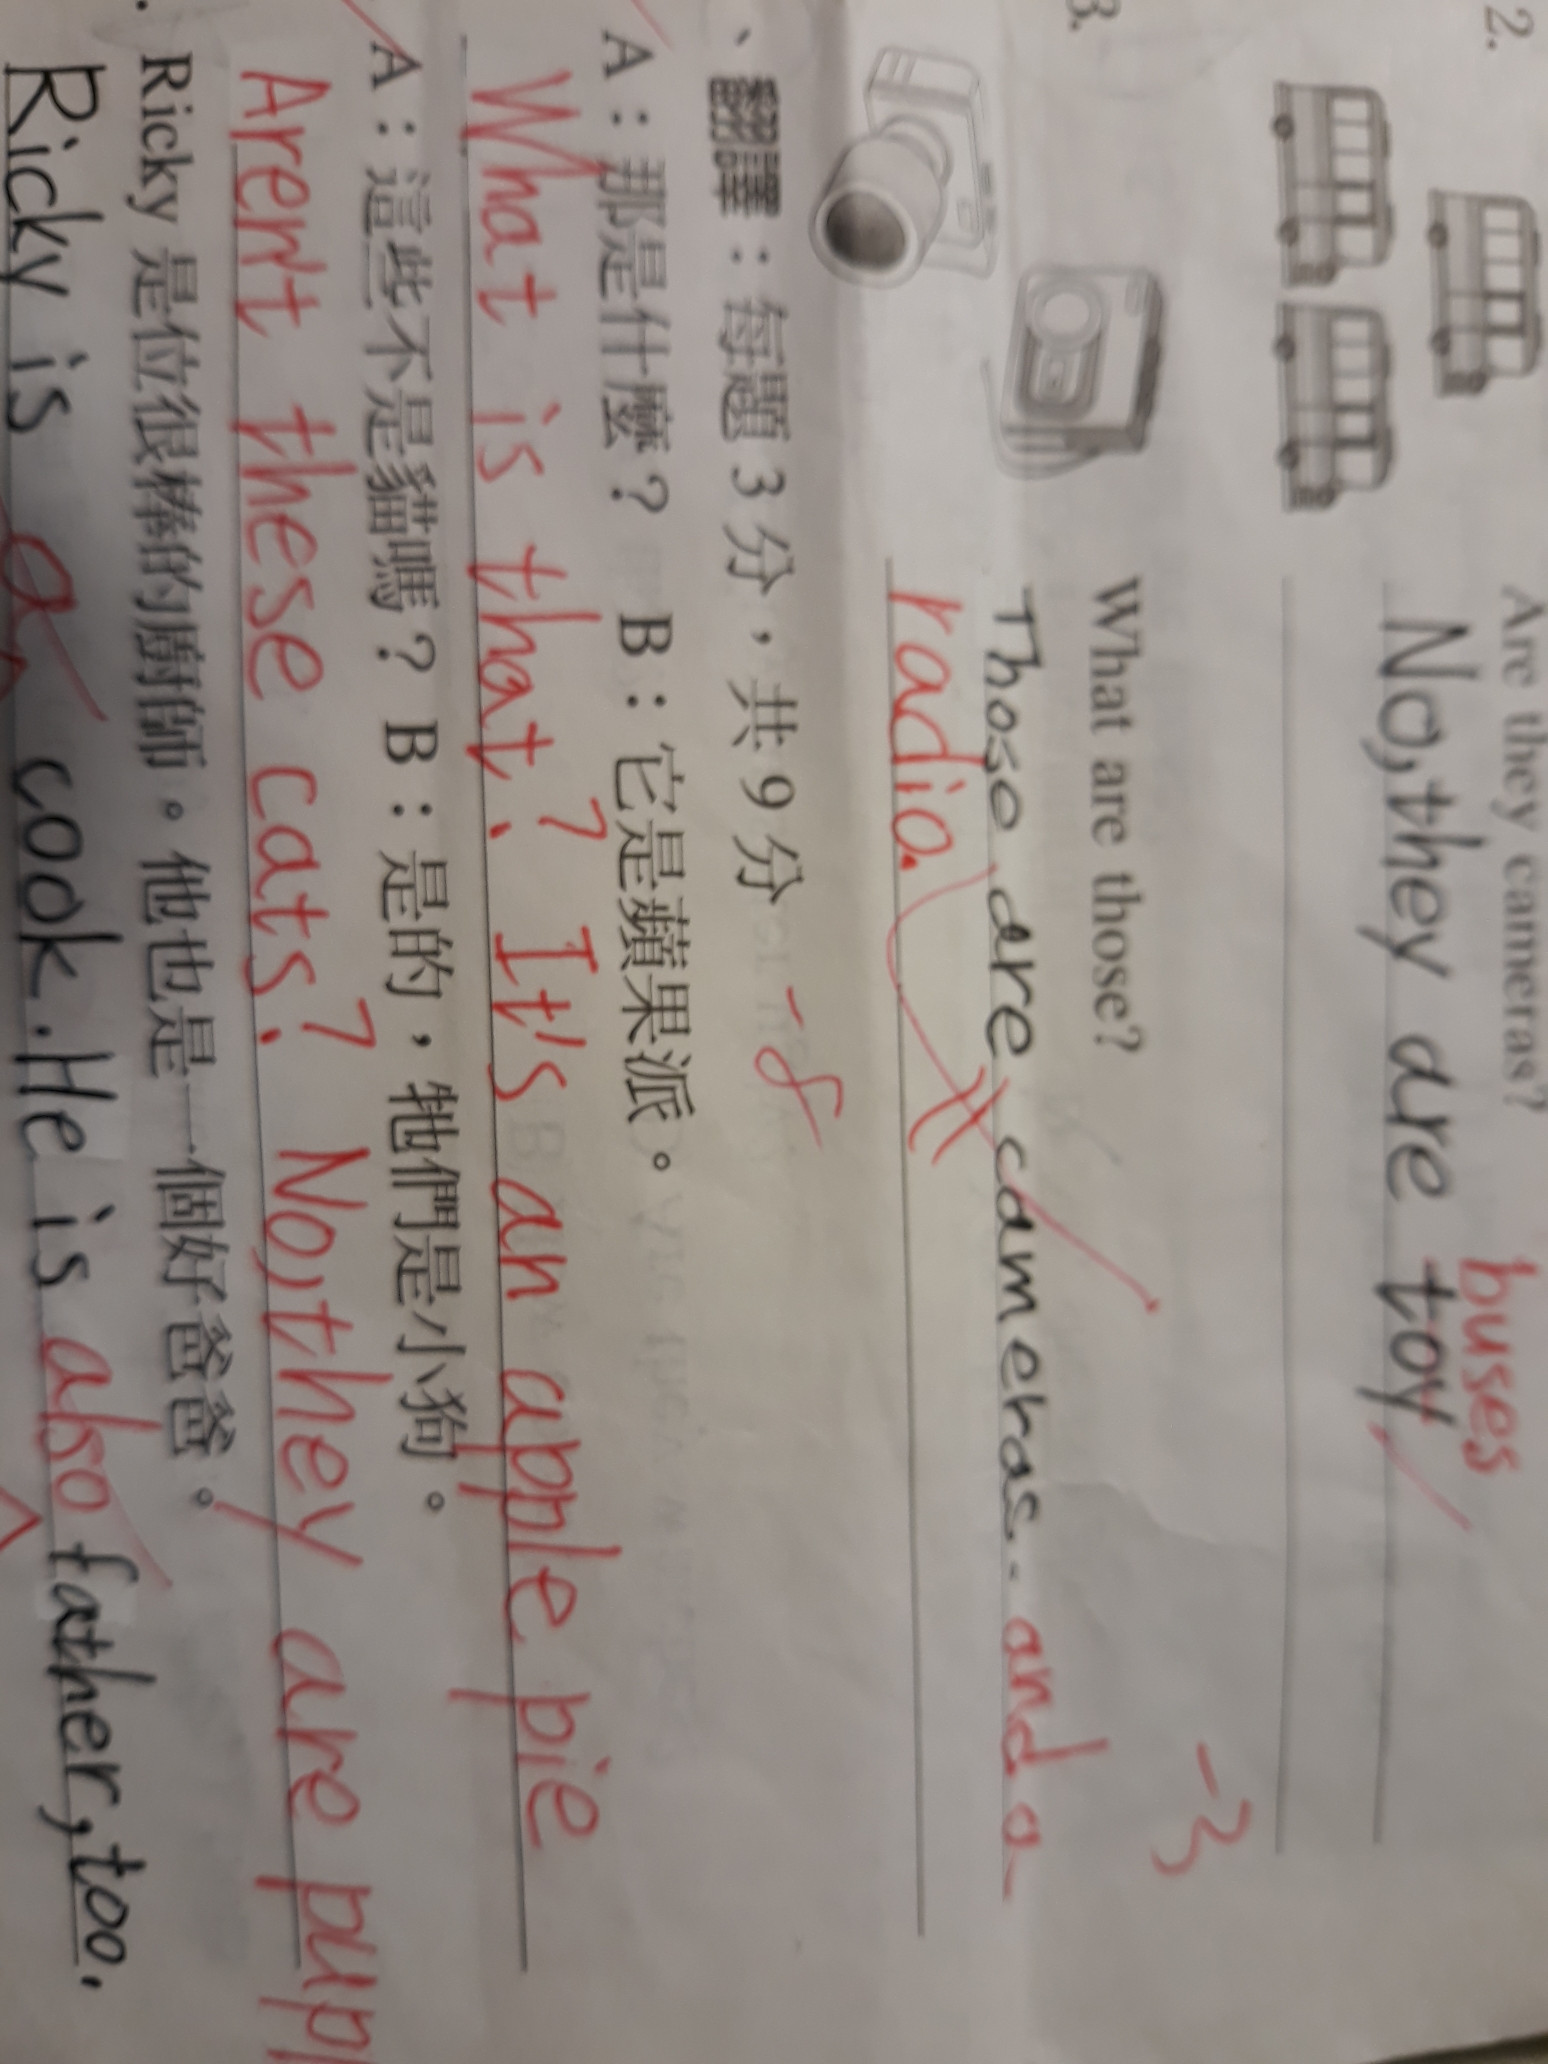 2.
Are they cameras?
buses
No, they are toy
-3
3.
What are those?
Those are cameras. and a
radio.
、翻譯：每題 3 分，共 9 分 -8
A：那是什麼？ B：它是蘋果派。
What is that? It's an apple pie
A：這些不是貓嗎？ B：是的，牠們是小狗。
Aren't these cats? No, they are pupp
Ricky 是位很棒的廚師。他也是一個好爸爸。
Ricky is a cook. He is also father, too.